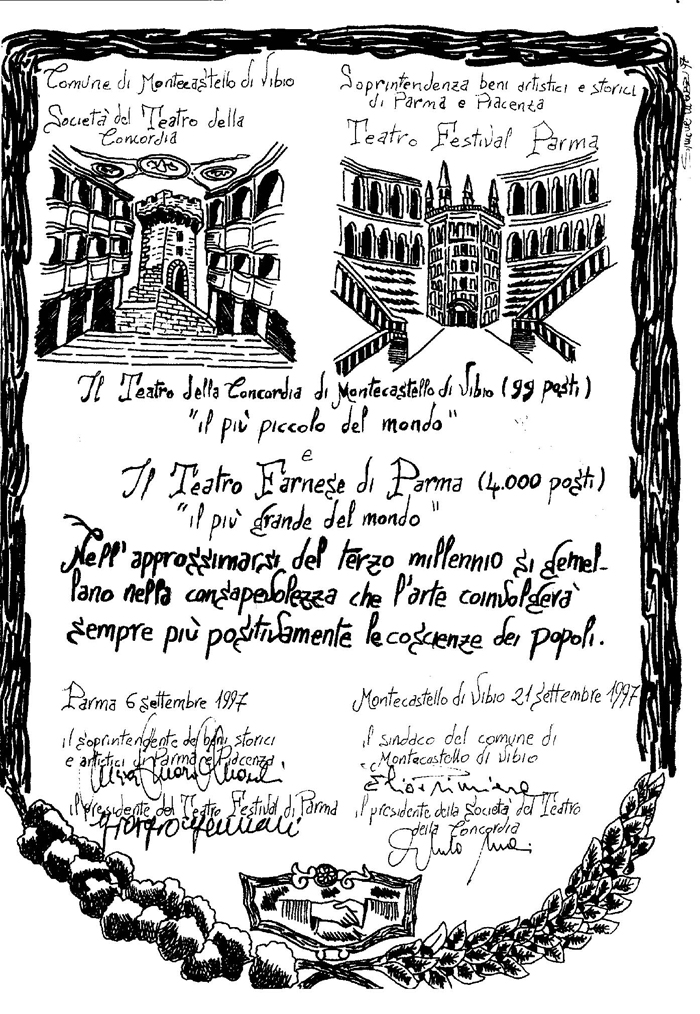 Comune di Montecastello di Vibio
Società del Teatro della
Concordia
Soprintendenza beni artistici e storici
di Parma e Piacenza
Teatro Festival Parma
Il Teatro della Concordia di Montecastello di Vibio (99 posti)
"il più piccolo del mondo"
e
Il Teatro Farnese di Parma (4.000 posti)
"il più grande del mondo"
Nell'approssimarsi del terzo millennio si gemel-
lano nella consapevolezza che l'arte coinvolgerà
sempre più positivamente le coscienze dei popoli.
Parma 6 settembre 1997
il soprintendente dei beni storici
e artistici di Parma e Piacenza
il presidente del Teatro Festival di Parma
Montecastello di Vibio 21 settembre 1997
il sindaco del comune di
Montecastello di Vibio
il presidente della Società del Teatro
della Concordia